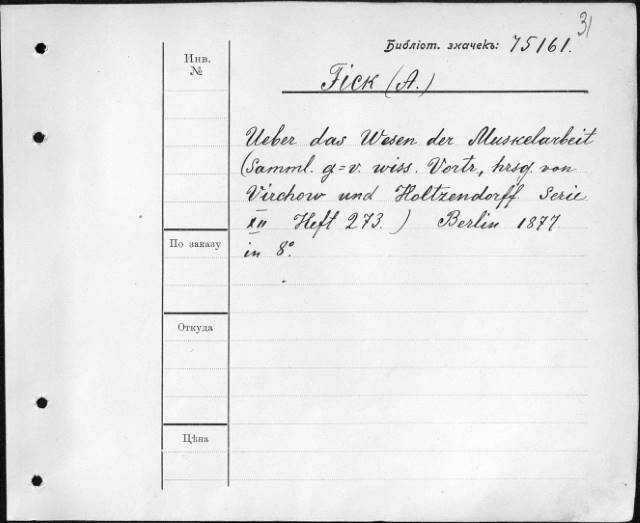 31
Библіот. значекъ: 75161.
Инв.
№
Fick (A.)
Ueber das Wesen der Muskelarbeit
(Samml. g=v. wiss. Vortr., hrsg. von
Virchow und Holtzendorff. Serie
XII Heft 273.) Berlin 1877.
in 8°.
По заказу
Откуда
Цѣна